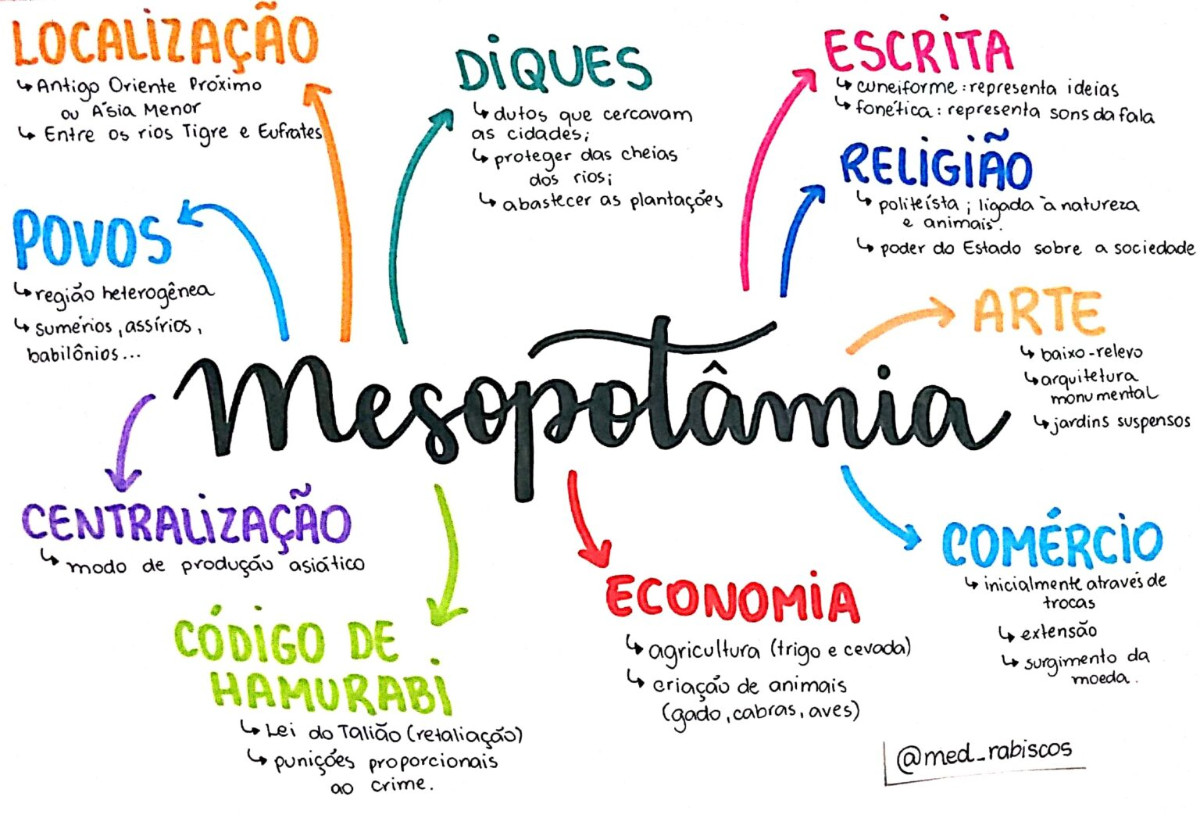 LOCALIZAÇÃO
↳ Antigo Oriente Próximo
ou Ásia Menor
↳ Entre os rios Tigre e Eufrates
DIQUES
↳ dutos que cercavam
as cidades;
↳ proteger das cheias
dos rios;
↳ abastecer as plantações
ESCRITA
↳ cuneiforme: representa ideias
↳ fonética: representa sons da fala
RELIGIÃO
↳ politeísta; ligada à natureza
e animais.
↳ poder do Estado sobre a sociedade
POVOS
↳ região heterogênea
↳ sumérios, assírios,
babilônios...
ARTE
↳ baixo-relevo
↳ arquitetura
monumental
↳ jardins suspensos
Mesopotâmia
CENTRALIZAÇÃO
↳ modo de produção asiático
CÓDIGO DE
HAMURABI
↳ Lei do Talião (retaliação)
↳ punições proporcionais
ao crime.
ECONOMIA
↳ agricultura (trigo e cevada)
↳ criação de animais
(gado, cabras, aves)
COMÉRCIO
↳ inicialmente através de
trocas
↳ extensão
↳ surgimento da
moeda.
@med_rabiscos